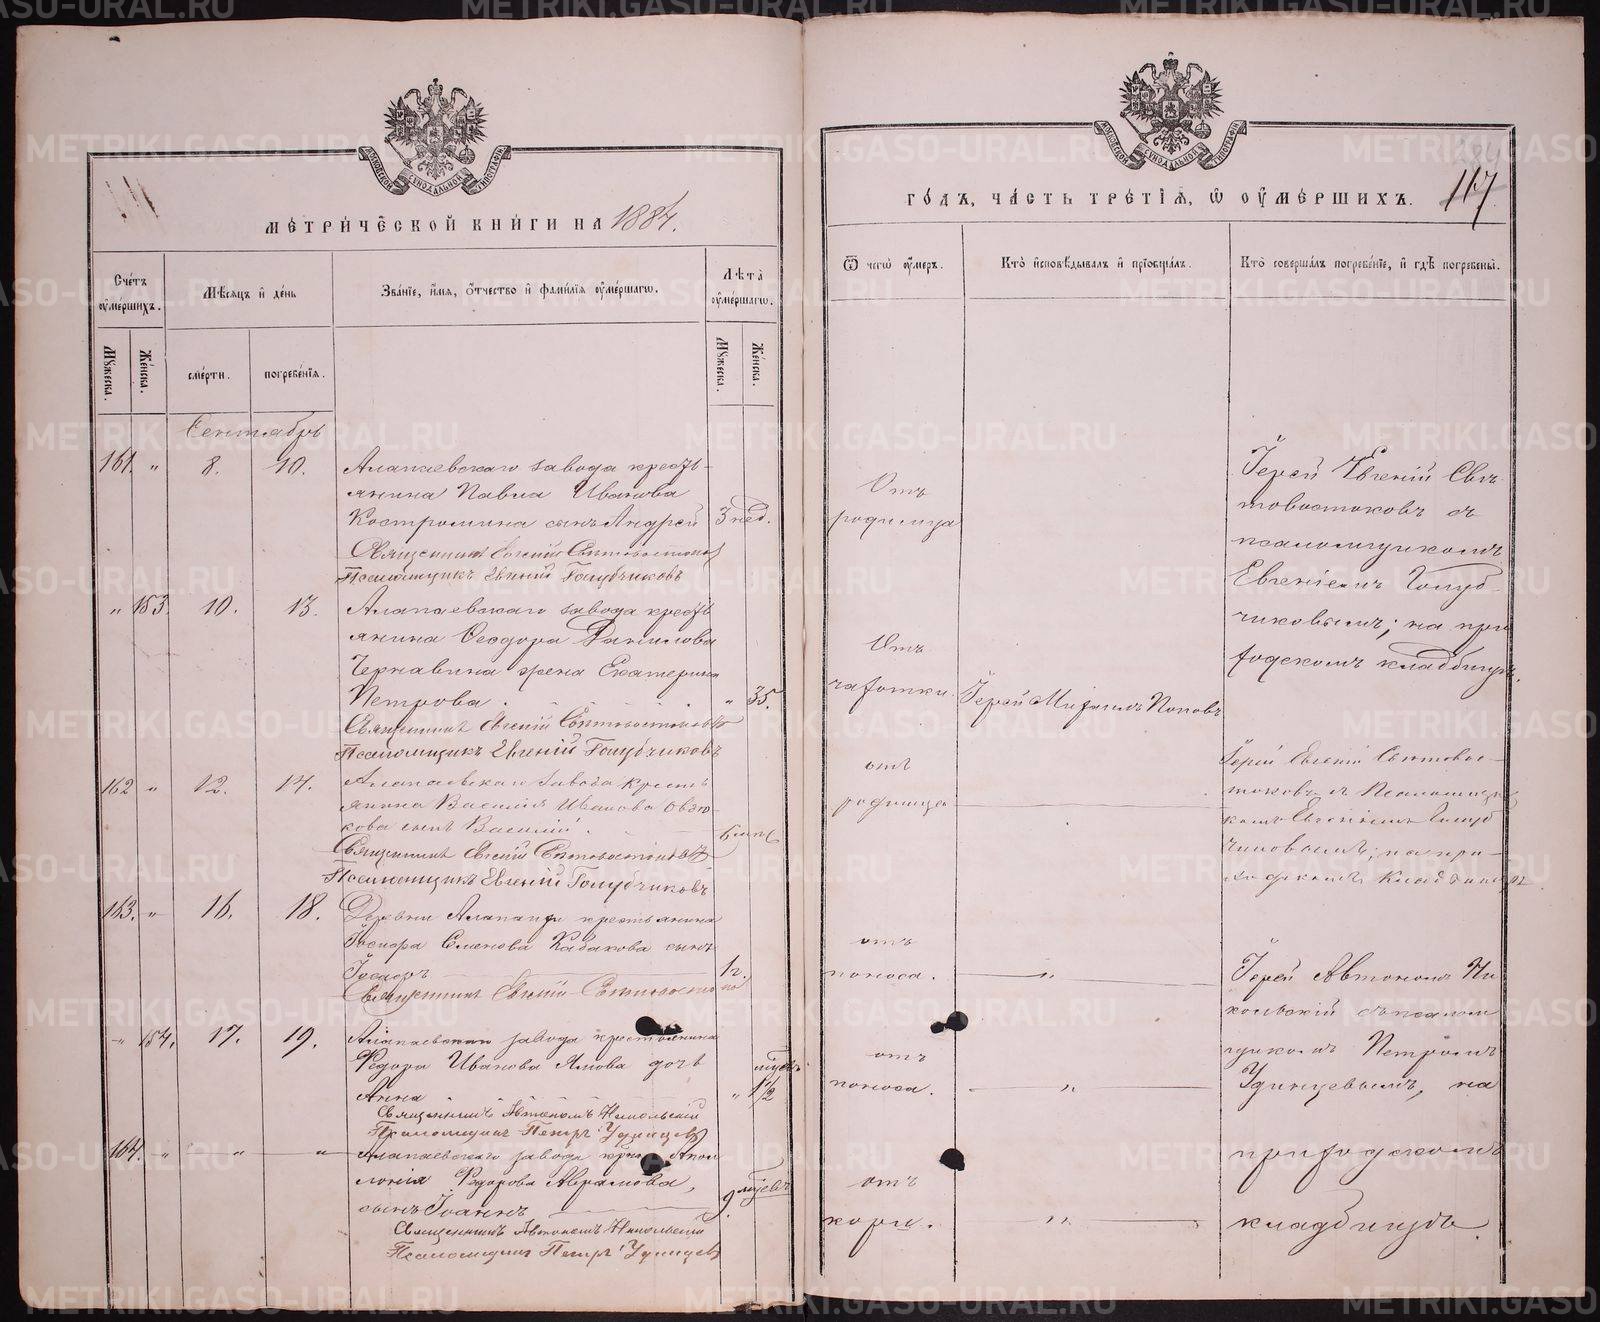 МЕТРИЧЕСКОЙ КНИГИ НА 1884.
Счетъ умершихъ.
Мужеска.
Женска.
Мѣсяцъ и день
смерти.
погребенія.
Званіе, имя, отчество и фамилія умершагω.
Лѣта умершагω.
Мужеска.
Женска.
Сентябрь
161. " 8. 10.
Алапаевскаго завода кресть-
янина Павла Иванова
Костромина сынъ Андрей 3 нед.
Священникъ Евгеній Святовостоковъ
Псаломщикъ Евгеній Голубчиковъ
" 153. 10. 13.
Алапаевскаго завода кресть
янина Ѳеодора Данилова
Чернавина жена Екатерина
Петрова . . . " 35.
Священникъ Евгеній Святовостоковъ
Псаломщикъ Евгеній Голубчиковъ
162 " 12. 14.
Алапаевскаго завода кресть
янина Василія Иванова
кова сынъ Василій.
Священникъ Евгеній Святовостоковъ
Псаломщикъ Евгеній Голубчиковъ
163. " 16. 18.
Деревни Алапаихи крестьянина
Ісидора Семенова Кабакова сынъ
Ісидоръ 1 г.
Священникъ Евгеній Святовостоковъ
" 154. 17. 19.
Алапаевскаго завода крестьянина
Ѳедора Иванова дочь
Анна " 1 1/2
Священникъ Автономъ Никольскій
Псаломщикъ Петръ Удинцевъ
164. " " "
Алапаевскаго завода Апол
лонія Ѳедорова Аврамова,
сынъ Іоаннъ 9 мѣсяцъ
Священникъ Автономъ Никольскій
Псаломщикъ Петръ Удинцевъ
МОСКОВСКОЙ СѴНОДАЛЬНОЙ ТИПОГРАФІИ
МОСКОВСКОЙ СѴНОДАЛЬНОЙ ТИПОГРАФІИ
ГОДЪ, ЧАСТЬ ТРЕТІЯ, Ѿ УМЕРШИХЪ.
117
Ѿ чегω умеръ.
Кто исповѣдывалъ и пріобщалъ.
Кто совершалъ погребеніе, и гдѣ погребены.
Отъ
родимца
Іерей Евгеній Свя
товостоковъ съ
псаломщикомъ
Евгеніемъ Голуб
чиковымъ; на при
ходскомъ кладбищѣ.
Отъ
чахотки. Іерей Михаилъ Поповъ
отъ
родимца
Іерей Евгеній Святовос-
токовъ съ Псаломщи
комъ Евгеніемъ Голуб
чиковымъ; на при-
ходскомъ кладбищѣ
отъ
поноса. "
Іерей Автономъ Ни
кольскій съ псалом
щикомъ Петромъ
Удинцевымъ, на
приходскомъ
кладбищѣ.
отъ
поноса. "
отъ
кори. "
METRIKI.GASO-URAL.RU